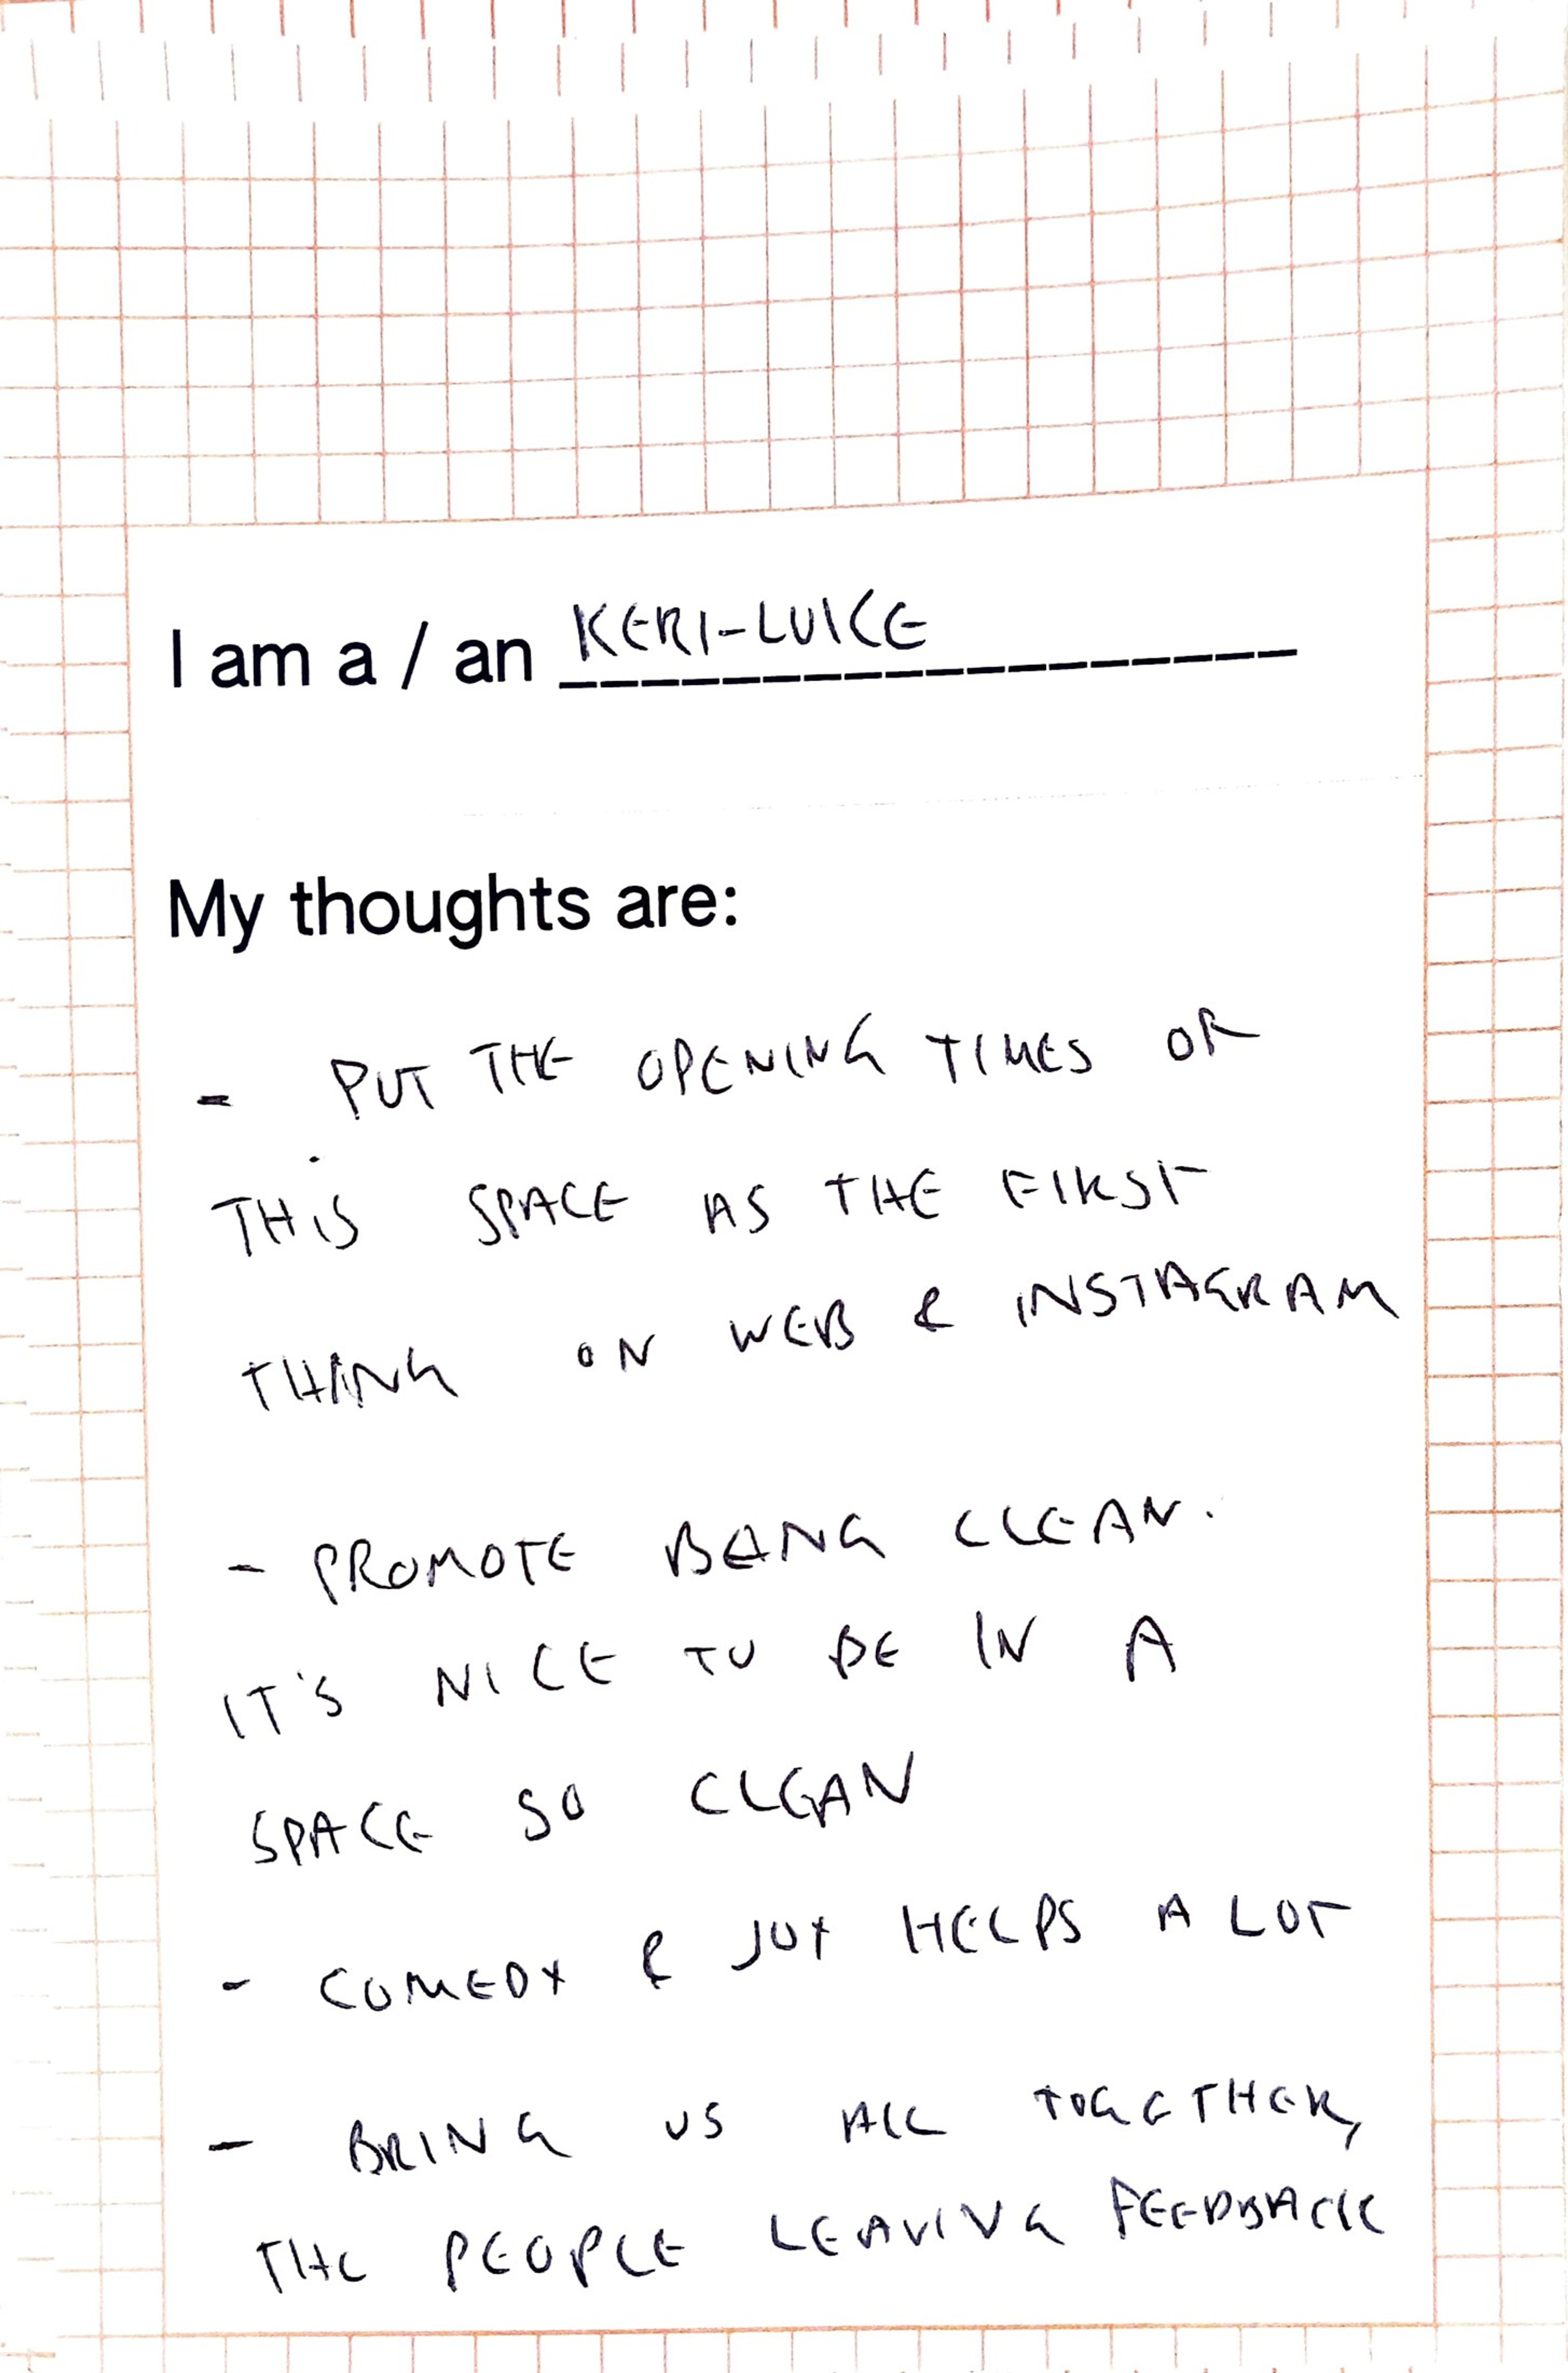 I am a / an KERI-LUICE
My thoughts are:
- PUT THE OPENING TIMES OF
THIS SPACE AS THE FIRST
THING ON WEB & INSTAGRAM
- PROMOTE BANG CLEAN.
IT'S NICE TO BE IN A
SPACE SO CLEAN
- COMEDY & JOY HELPS A LOT
- BRING US ALL TOGETHER,
THE PEOPLE LEAVING FEEDBACK